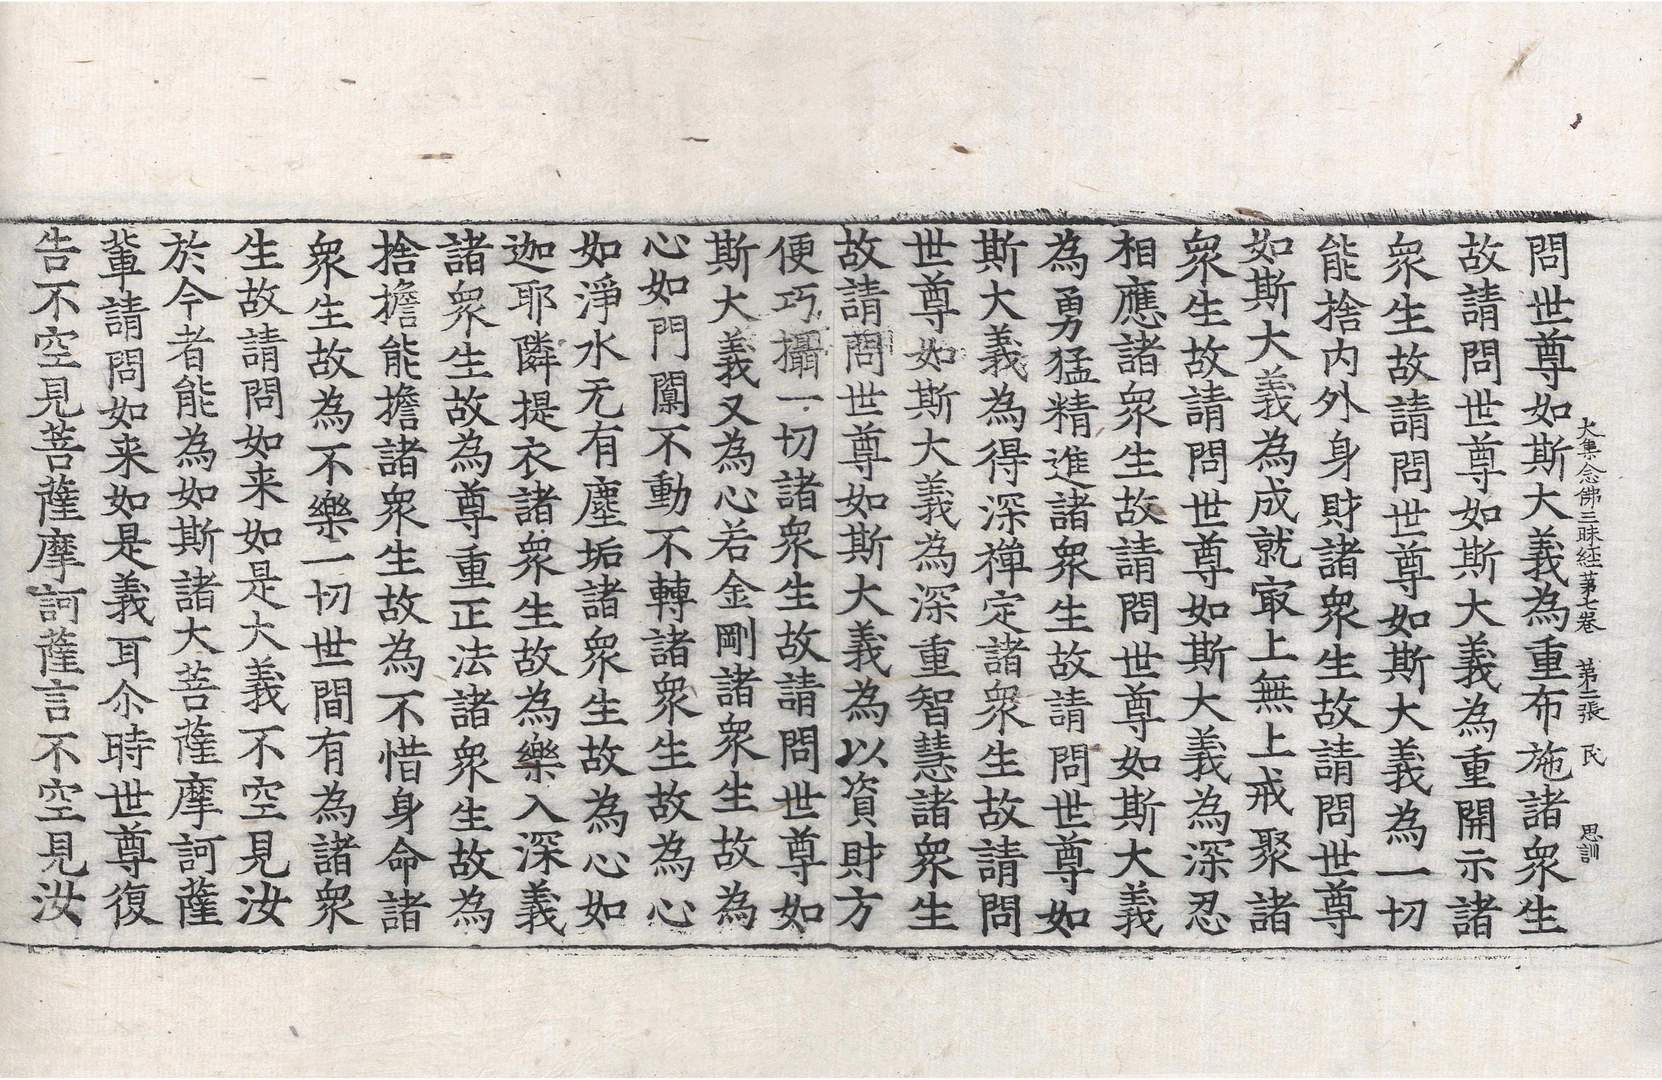 大集念佛三昧経苐七卷　第二張　民　思訓
問世尊如斯大義為重布施諸衆生
故請問世尊如斯大義為重開示諸
衆生故請問世尊如斯大義為一切
能捨内外身財諸衆生故請問世尊
如斯大義為成就㝡上無上戒聚諸
衆生故請問世尊如斯大義為深忍
相應諸衆生故請問世尊如斯大義
為勇猛精進諸衆生故請問世尊如
斯大義為得深禪定諸衆生故請問
世尊如斯大義為深重智慧諸衆生
故請問世尊如斯大義為以資財方
便巧攝一切諸衆生故請問世尊如
斯大義又為心若金剛諸衆生故為
心如門閫不動不轉諸衆生故為心
如淨水无有塵垢諸衆生故為心如
迦耶隣提衣諸衆生故為樂入深義
諸衆生故為尊重正法諸衆生故為
捨擔能擔諸衆生故為不惜身命諸
衆生故為不樂一切世間有為諸衆
生故請問如来如是大義不空見汝
於今者能為如斯諸大菩薩摩訶薩
輩請問如来如是義耳尒時世尊復
告不空見菩薩摩訶薩言不空見汝